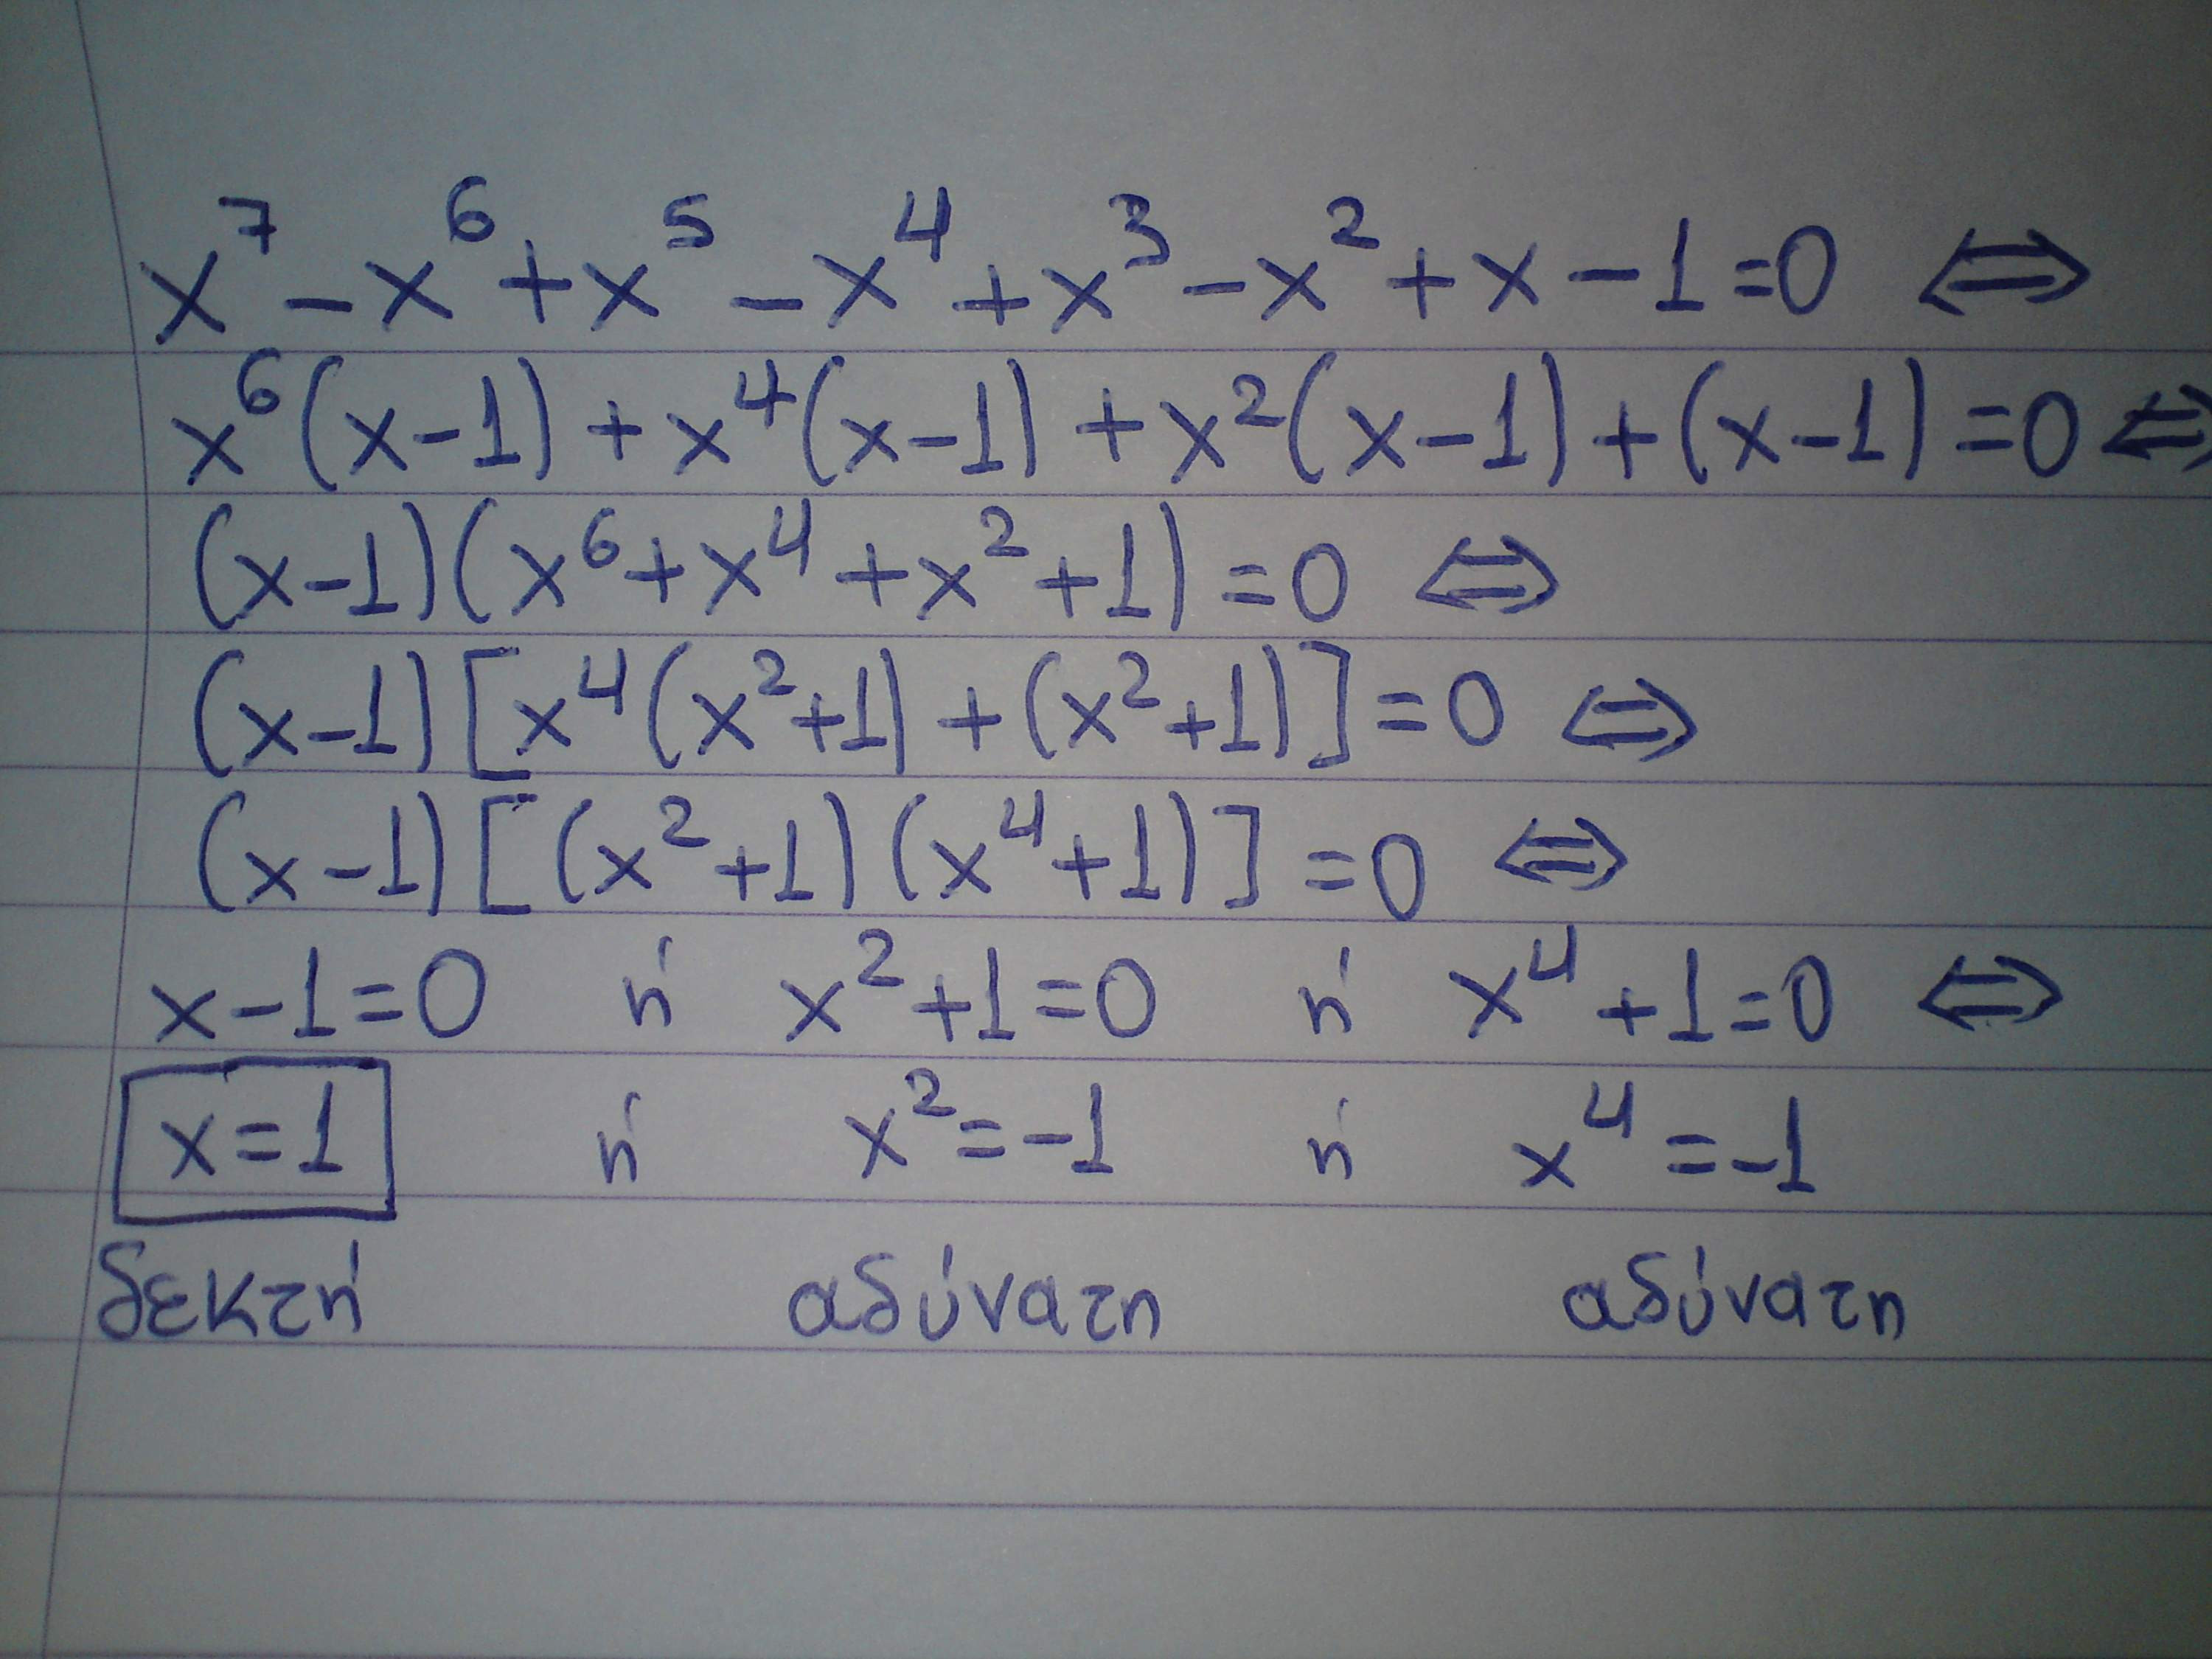 x⁷ - x⁶ + x⁵ - x⁴ + x³ - x² + x - 1 = 0 ⇔
x⁶(x-1) + x⁴(x-1) + x²(x-1) + (x-1) = 0 ⇔
(x-1)(x⁶ + x⁴ + x² + 1) = 0 ⇔
(x-1)[x⁴(x²+1) + (x²+1)] = 0 ⇔
(x-1)[(x²+1)(x⁴+1)] = 0 ⇔
x-1=0 ή x²+1=0 ή x⁴+1=0 ⇔
x=1 ή x²=-1 ή x⁴=-1
δεκτή αδύνατη αδύνατη